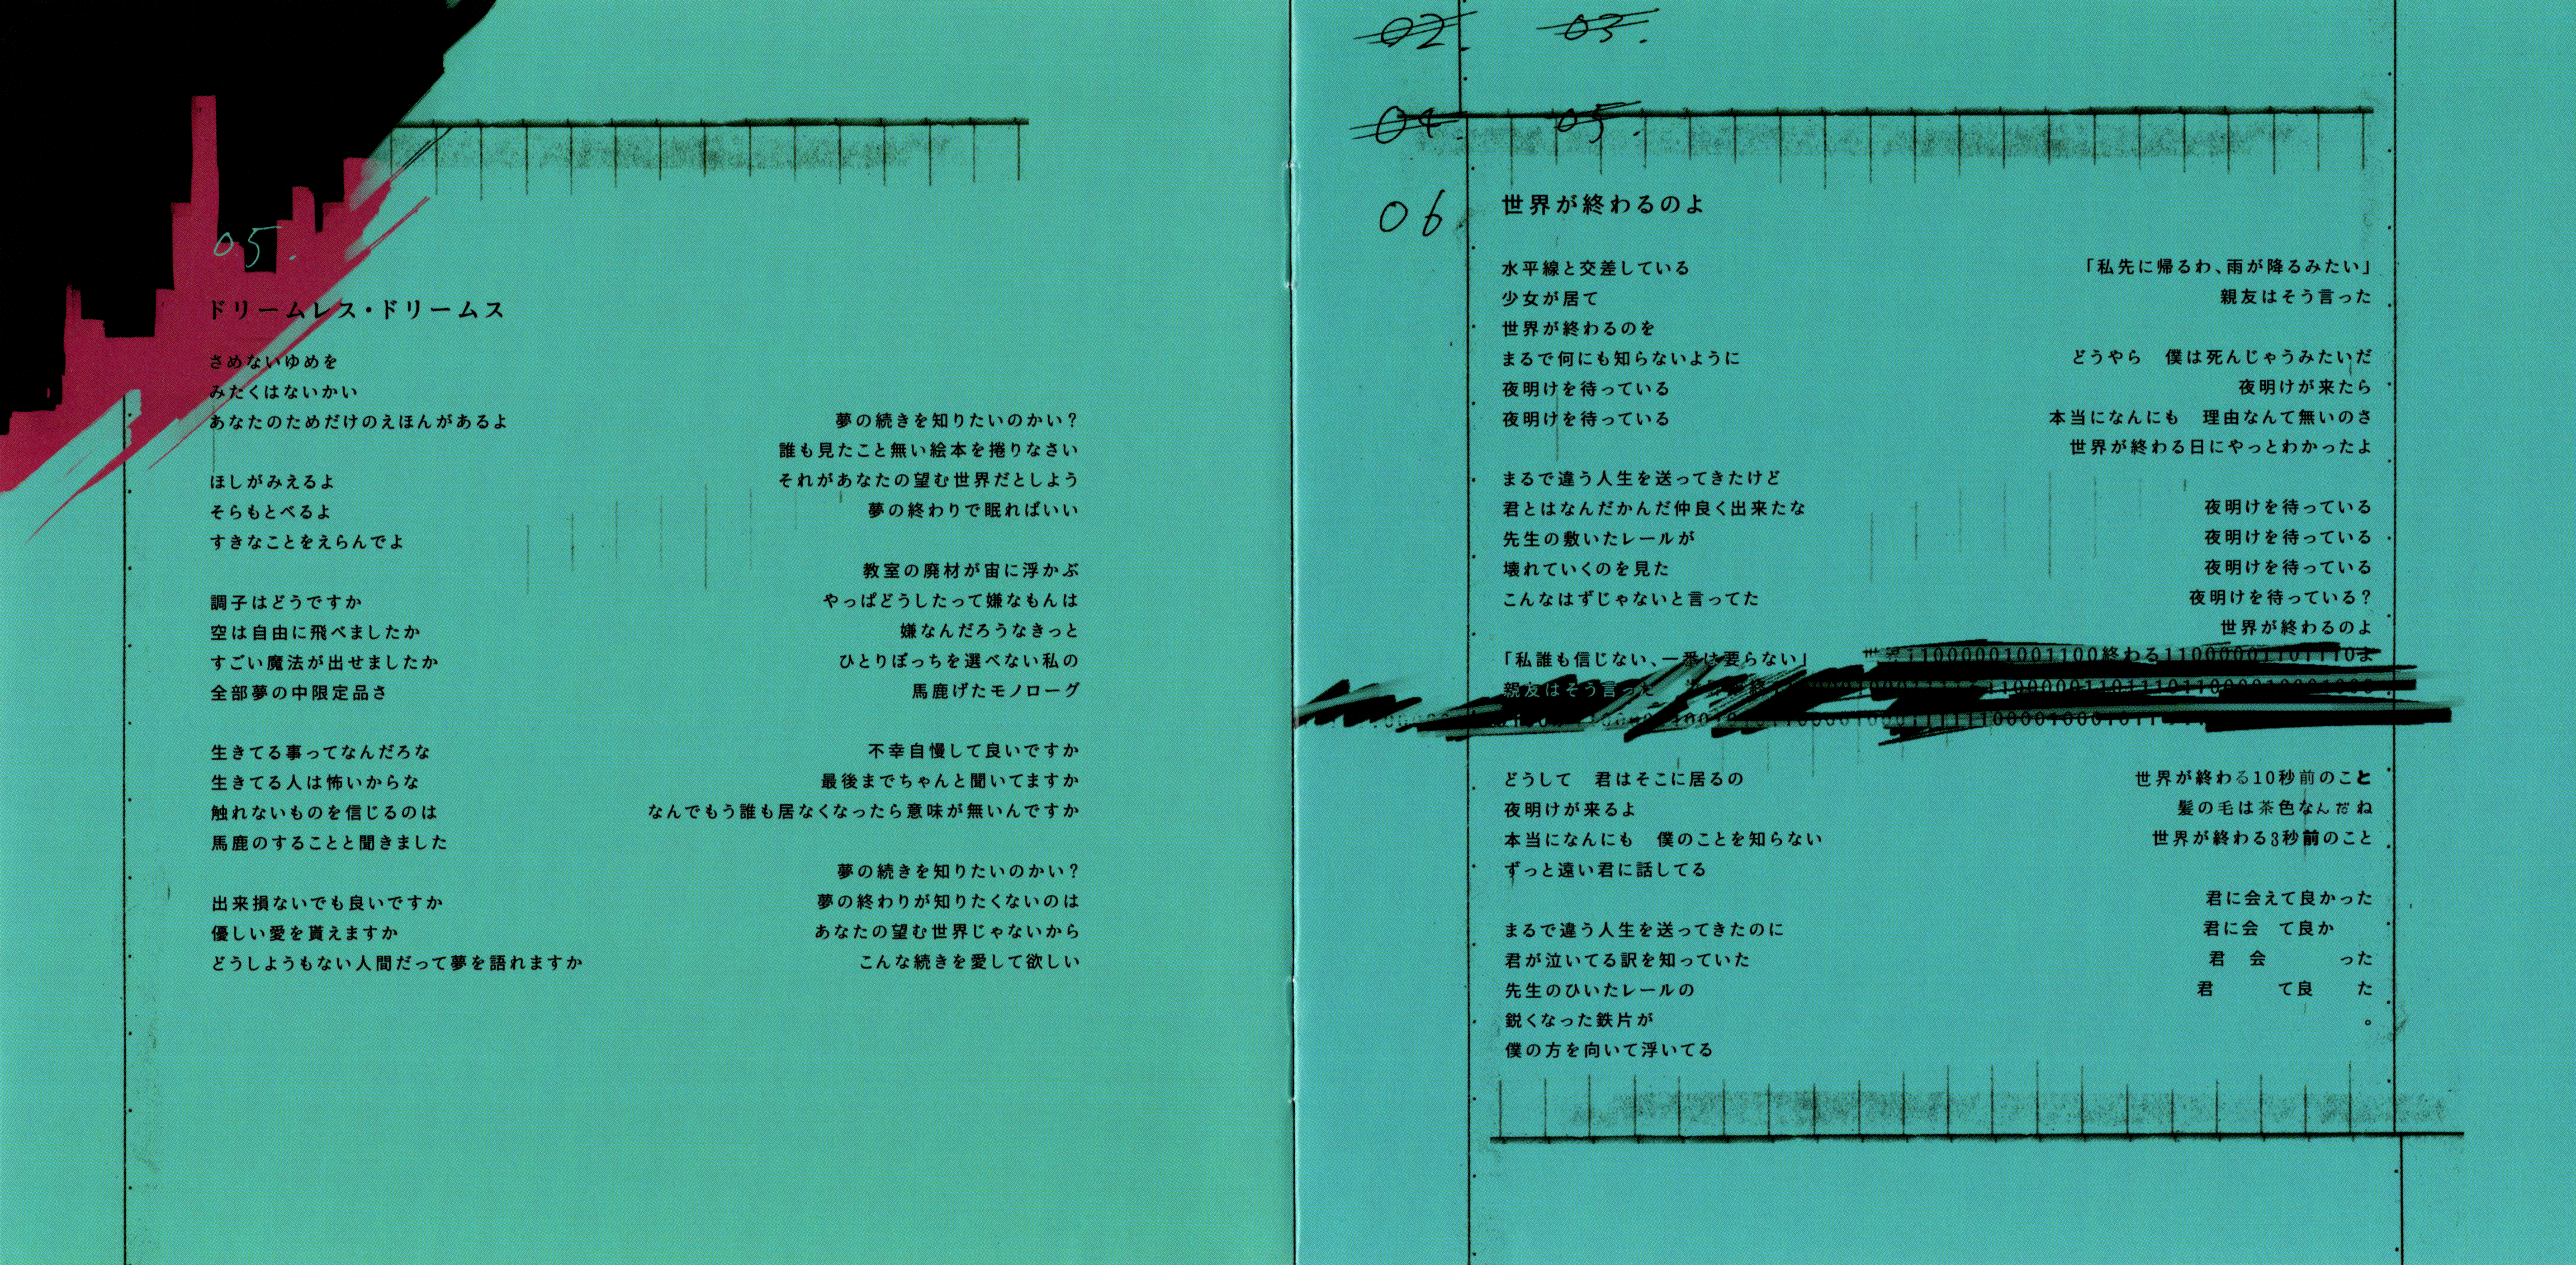 05.
ドリームレス・ドリームス
さめないゆめを
みたくはないかい
あなたのためだけのえほんがあるよ
ほしがみえるよ
そらもとべるよ
すきなことをえらんでよ
調子はどうですか
空は自由に飛べましたか
すごい魔法が出せましたか
全部夢の中限定品さ
生きてる事ってなんだろな
生きてる人は怖いからな
触れないものを信じるのは
馬鹿のすることと聞きました
出来損ないでも良いですか
優しい愛を貰えますか
どうしようもない人間だって夢を語れますか
夢の続きを知りたいのかい？
誰も見たこと無い絵本を捲りなさい
それがあなたの望む世界だとしよう
夢の終わりで眠ればいい
教室の廃材が宙に浮かぶ
やっぱどうしたって嫌なもんは
嫌なんだろうなきっと
ひとりぼっちを選べない私の
馬鹿げたモノローグ
不幸自慢して良いですか
最後までちゃんと聞いてますか
なんでもう誰も居なくなったら意味が無いんですか
夢の続きを知りたいのかい？
夢の終わりが知りたくないのは
あなたの望む世界じゃないから
こんな続きを愛して欲しい
02. 03.
04. 05.
06.
世界が終わるのよ
水平線と交差している
少女が居て
世界が終わるのを
まるで何にも知らないように
夜明けを待っている
夜明けを待っている
まるで違う人生を送ってきたけど
君とはなんだかんだ仲良く出来たな
先生の敷いたレールが
壊れていくのを見た
こんなはずじゃないと言ってた
「私誰も信じない、一番は要らない」
親友はそう言った
どうして　君はそこに居るの
夜明けが来るよ
本当になんにも　僕のことを知らない
ずっと遠い君に話してる
まるで違う人生を送ってきたのに
君が泣いてる訳を知っていた
先生のひいたレールの
鋭くなった鉄片が
僕の方を向いて浮いてる
「私先に帰るわ、雨が降るみたい」
親友はそう言った
どうやら　僕は死んじゃうみたいだ
夜明けが来たら
本当になんにも　理由なんて無いのさ
世界が終わる日にやっとわかったよ
夜明けを待っている
夜明けを待っている
夜明けを待っている
夜明けを待っている？
世界が終わるのよ
世界11000001001100終わる11000001101110よ
世界が終わる10秒前のこと
髪の毛は茶色なんだね
世界が終わる3秒前のこと
君に会えて良かった
君に会　て良か
君　会　　　った
君　　　て良　　た
。